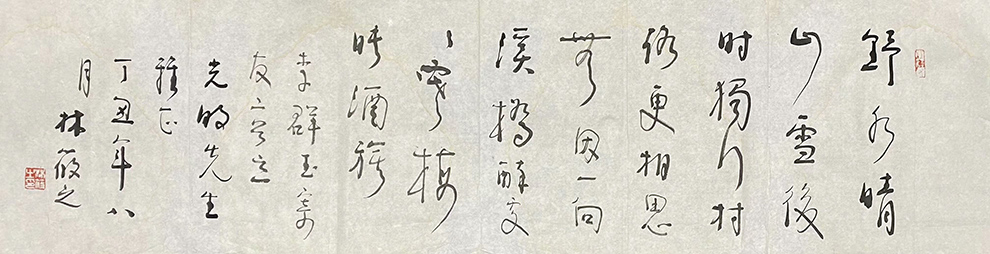 野水晴
山雪後
时獨行村
路更相思
無因一向
溪橋醉处
〻寒梅
映酒旗
李群玉寄
友
光明先生
雅正
丁丑年八
月 林筱之